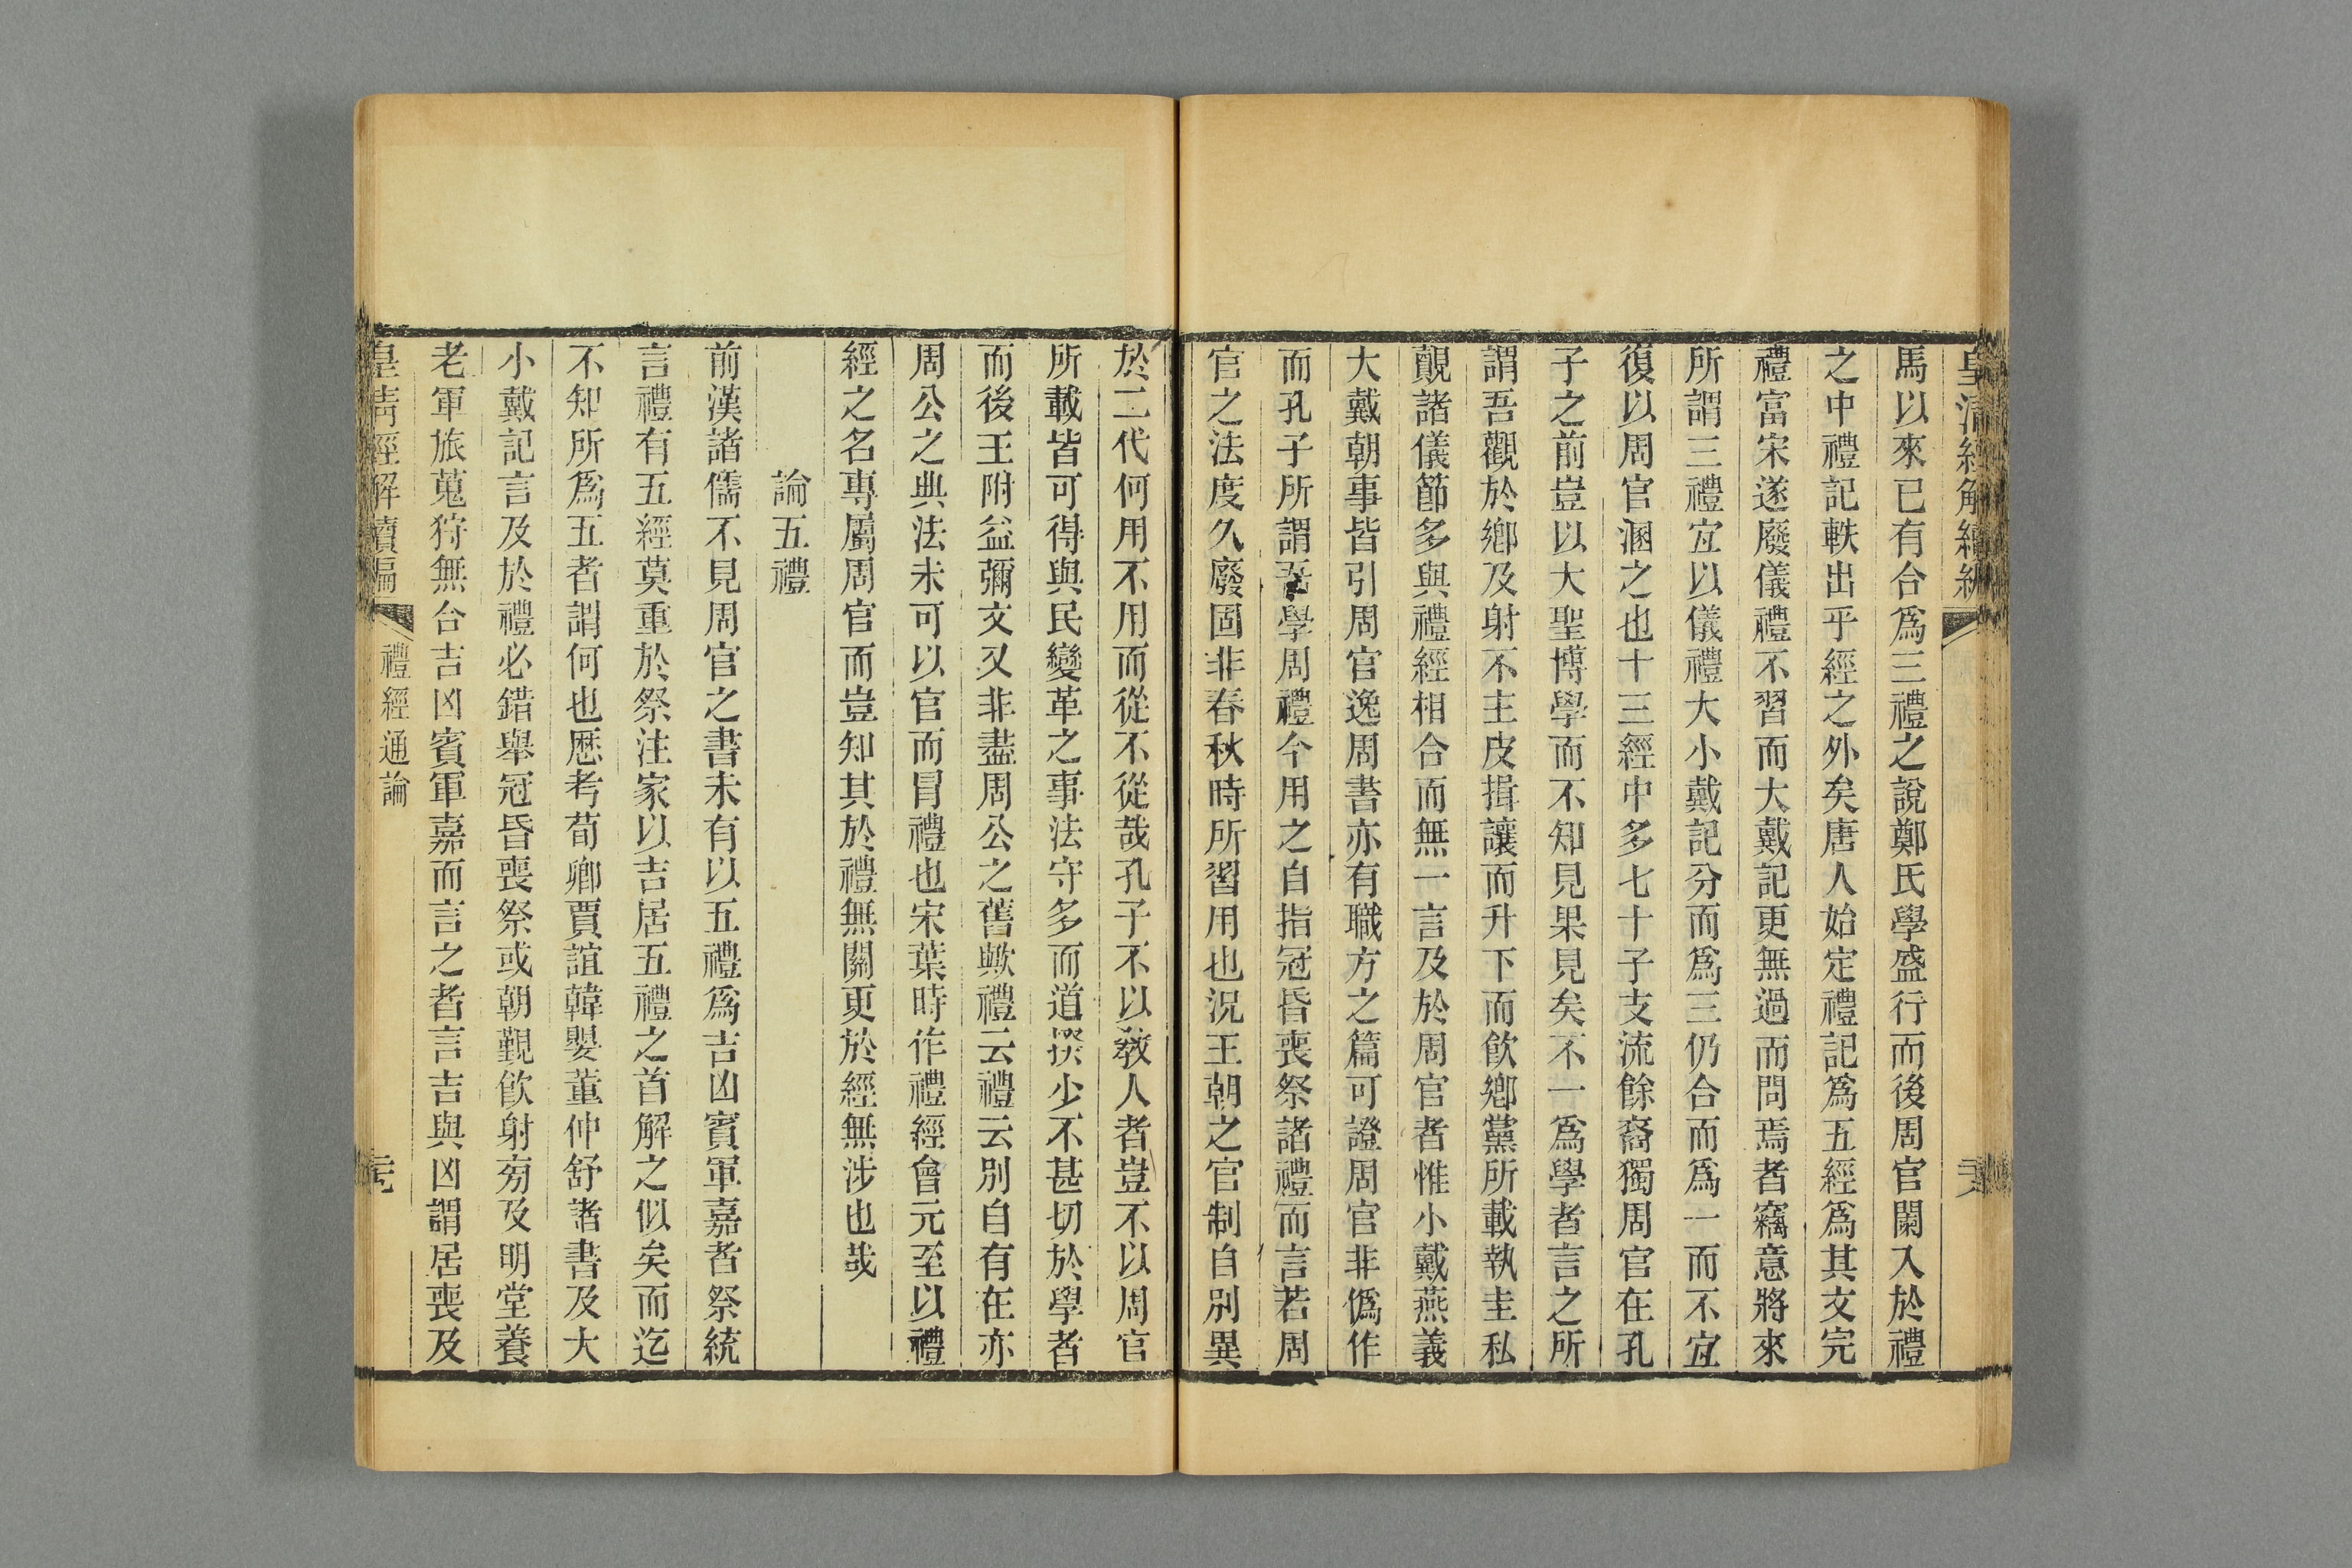 皇清經解續編
馬以來已有合爲三禮之說鄭氏學盛行而後周官闌入於禮
之中禮記軼出乎經之外矣唐人始定禮記爲五經爲其文完
禮富宋遂廢儀禮不習而大戴記更無過而問焉者竊意將來
所謂三禮宜以儀禮大小戴記分而爲三仍合而爲一而不宜
復以周官溷之也十三經中多七十子支流餘裔獨周官在孔
子之前豈以大聖博學而不知見果見矣不一爲學者言之所
謂吾觀於鄉及射不主皮揖讓而升下而飮鄉黨所載執圭私
覿諸儀節多與禮經相合而無一言及於周官者惟小戴燕義
大戴朝事皆引周官逸周書亦有職方之篇可證周官非僞作
而孔子所謂吾學周禮今用之自指冠昏喪祭諸禮而言若周
官之法度久廢固非春秋時所習用也況王朝之官制自別異
於二代何用不用而從不從哉孔子不以敎人者豈不以周官
所載皆可得與民變革之事法守多而道揆少不甚切於學者
而後王附益彌文又非盡周公之舊歟禮云禮云別自有在亦
周公之典法未可以官而冒禮也宋葉時作禮經會元至以禮
經之名專屬周官而豈知其於禮無關更於經無涉也哉
論五禮
前漢諸儒不見周官之書未有以五禮爲吉凶賓軍嘉者祭統
言禮有五經莫重於祭注家以吉居五禮之首解之似矣而迄
不知所爲五者謂何也歷考荀卿賈誼韓嬰董仲舒諸書及大
小戴記言及於禮必錯舉冠昏喪祭或朝覲飮射旁及明堂養
老軍旅蒐狩無合吉凶賓軍嘉而言之者言吉與凶謂居喪及
皇清經解續編
禮經通論